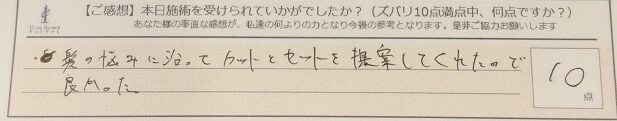 【ご感想】本日施術を受けられていかがでしたか？（ズバリ10点満点中、何点ですか？）
あなた様の率直な感想が、私達の何よりの力となり今後の参考となります。是非ご協力お願いします
髪の悩みに沿ってカットとセットを提案してくれたので
良かった。
10
点